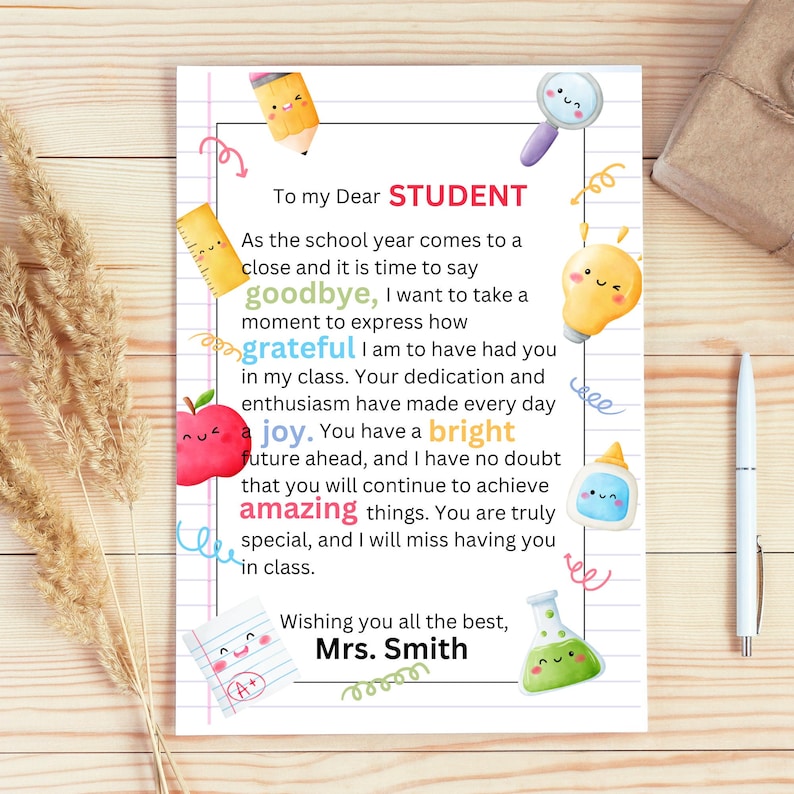 To my Dear STUDENT
As the school year comes to a
close and it is time to say
goodbye, I want to take a
moment to express how
grateful I am to have had you
in my class. Your dedication and
enthusiasm have made every day
a joy. You have a bright
future ahead, and I have no doubt
that you will continue to achieve
amazing things. You are truly
special, and I will miss having you
in class.
Wishing you all the best,
Mrs. Smith
A+